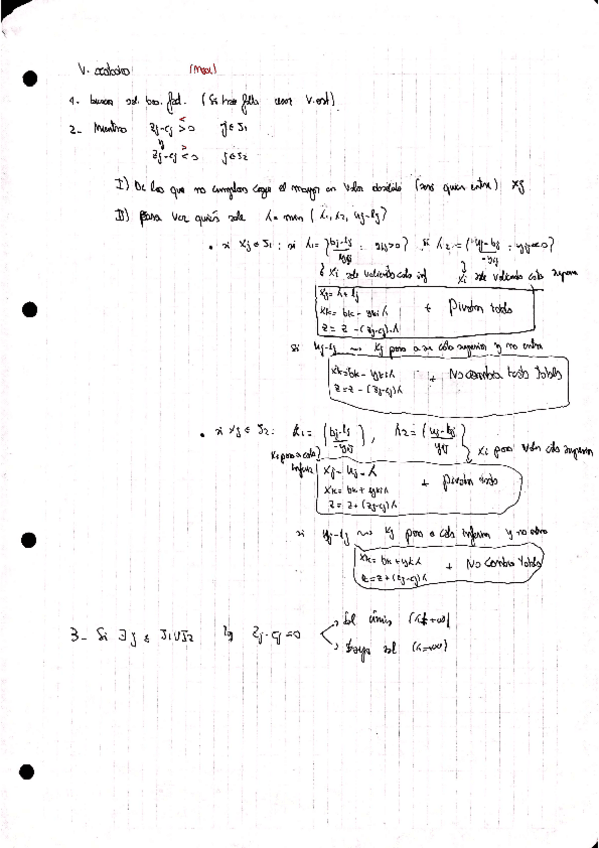 V. acotadas (Max)
1. buscar sol. bas. fact. (Si hace falta usar V. art)
2- Mientras zj-cj > 0 j ∈ J1
<
y
zj-cj < 0 j ∈ J2
>
I) De los que no cumplan coger el mayor en valor absoluto (será quien entre) xj
II) para ver quién sale λ = min {λ1, λ2, uj-lj}
• si xj ∈ J1: si λ1 = { : yij>0} si λ2 = { : yij<0}
xi sale valiendo cota inf xi sale valiendo cota superior
xj = λ + lj
xk = bk - ykj λ + Pivotar tabla
z = z - (zj-cj)·λ
si uj-lj → xj pasa a su cota superior y no entra
xk = bk - ykj λ + No cambia toda tabla
z = z - (zj-cj) λ
• si xj ∈ J2: λ1 = , λ2 =
xi pasa a cota inferior xi pasa valer cota superior
xj = uj - λ
xk = bk + ykj λ + pivotar toda
z = z + (zj-cj) λ
si uj-lj → xj pasa a cota inferior y no entra
xk = bk + ykj λ + No cambia tabla
z = z + (zj-cj) λ
3- Si ∃ j ∈ J1 ∪ J2 tq zj-cj = 0
sol (λ ≠ +∞)
sol (λ = +∞)